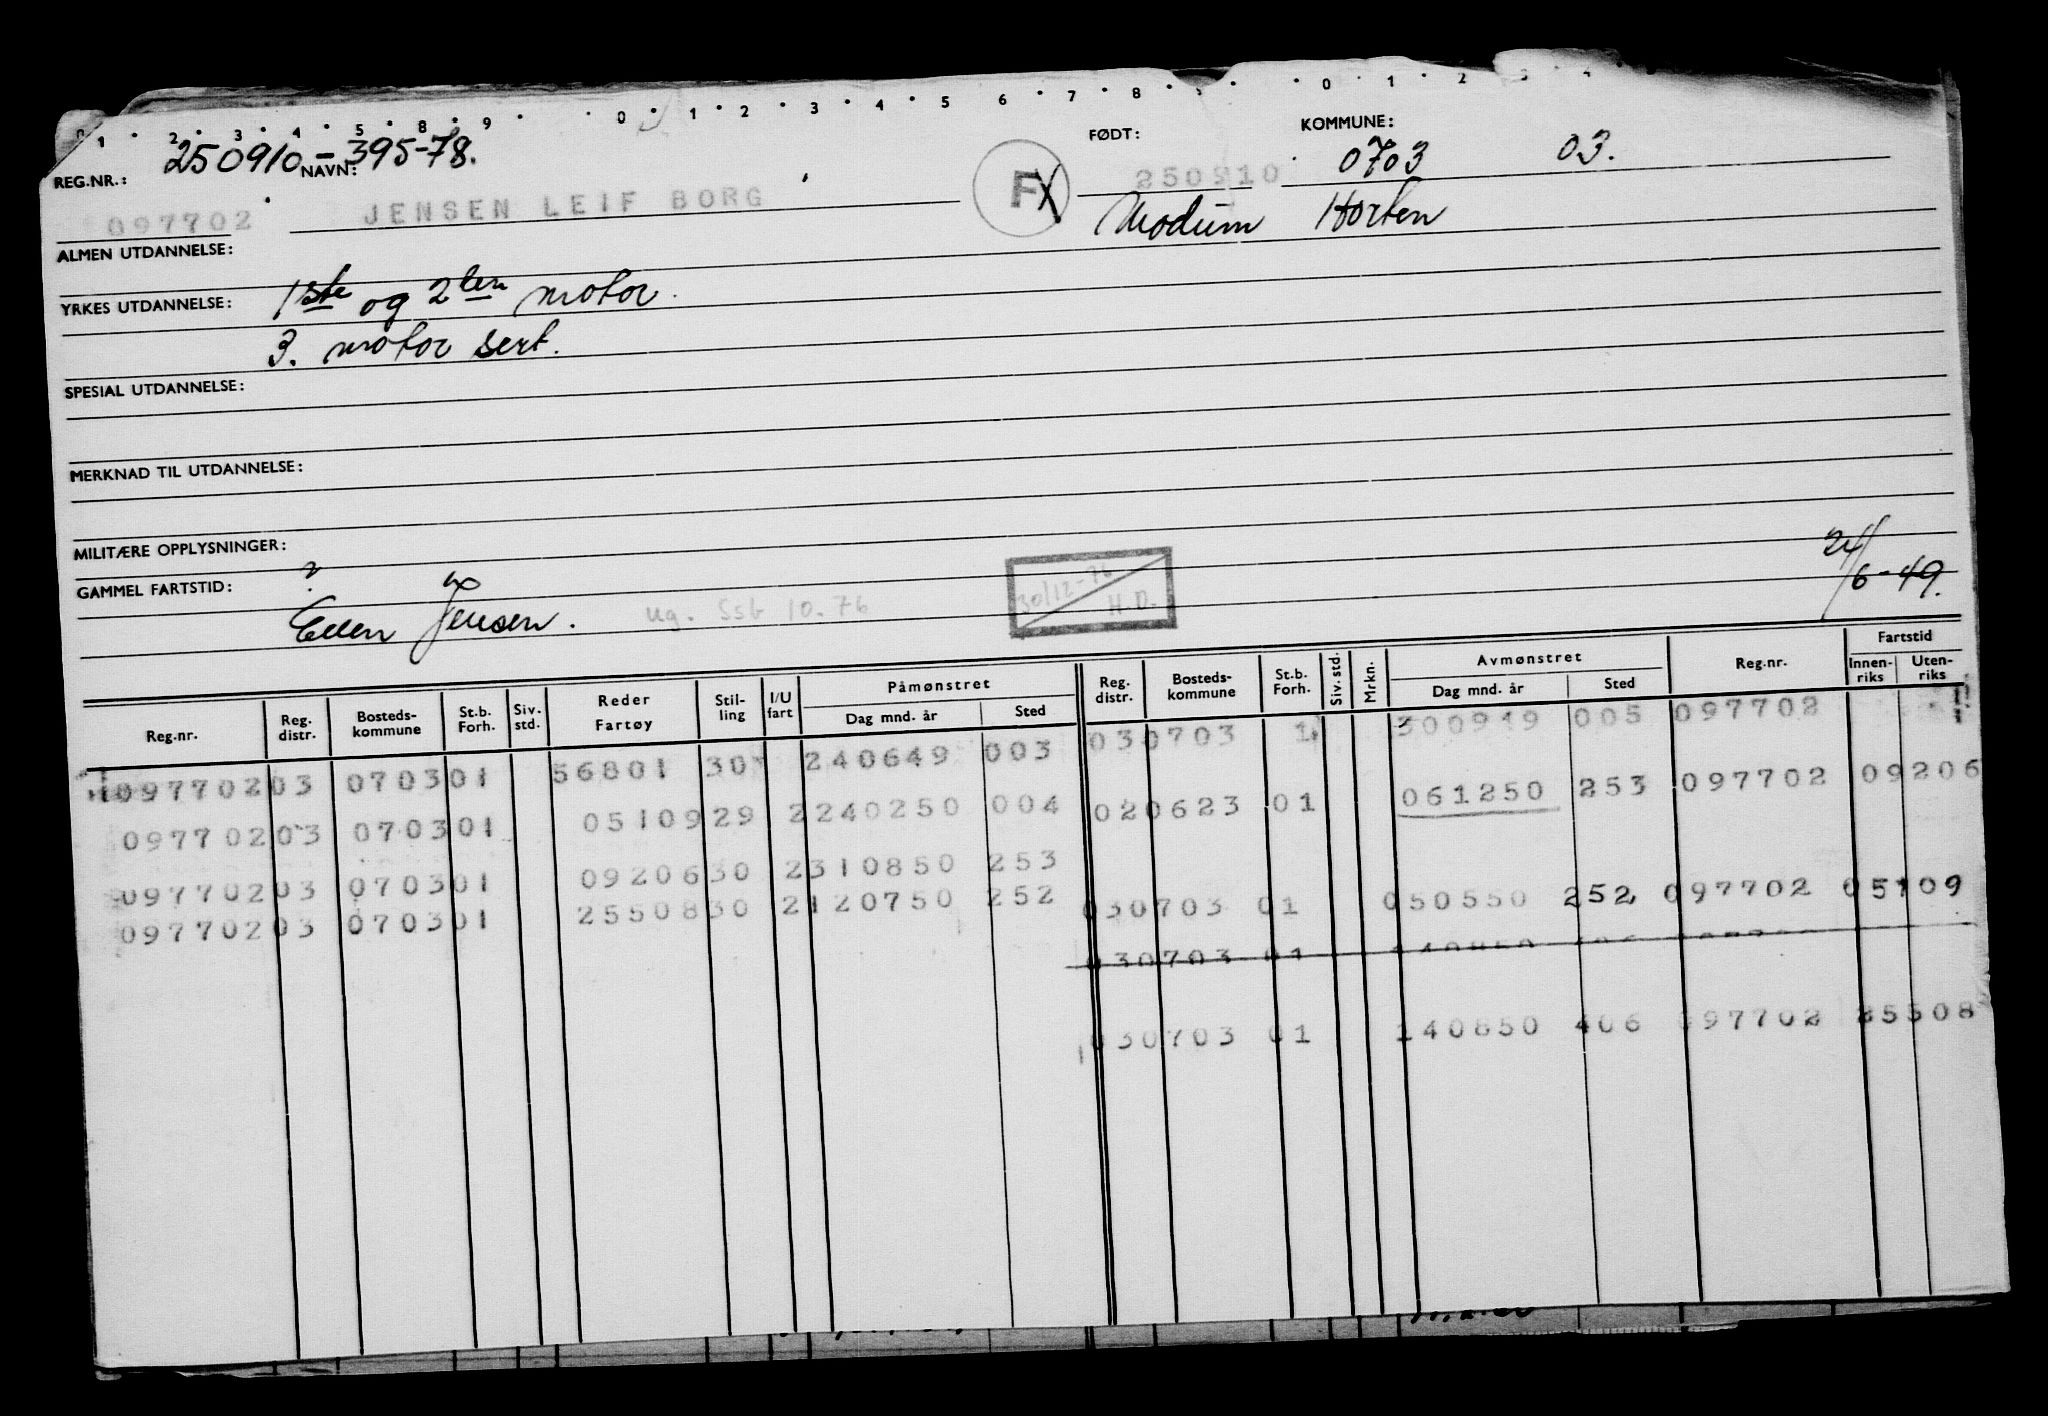 REG.NR.: 250910-395-78. NAVN: FØDT: KOMMUNE: 0703 03.
097702 JENSEN LEIF BORG F 250910
Modum Horten
ALMEN UTDANNELSE:
YRKES UTDANNELSE: 1ste og 2len motor.
3. motor sert.
SPESIAL UTDANNELSE:
MERKNAD TIL UTDANNELSE:
MILITÆRE OPPLYSNINGER:
GAMMEL FARTSTID: ?
24/6-49.
Ellen Jensen. ug. Ssb 10.76 30/12-76 H.D.
Reg.nr. Reg. distr. Bosteds-kommune St.b. Forh. Siv. std. Reder Fartøy Stil-ling I/U fart Påmønstret Dag mnd. år Sted Reg. distr. Bosteds-kommune St.b. Forh. Siv. std. Mrkn. Avmønstret Dag mnd. år Sted Reg.nr. Fartstid Innen-riks Uten-riks
097702 03 0703 01 56801 30 240649 003 03 0703 1 300949 005 097702
097702 03 0703 01 05109 29 2 240250 004 02 0623 01 061250 253 097702 09206
097702 03 0703 01 09206 30 2 310850 253
097702 03 0703 01 25508 30 2 120750 252 03 0703 01 050550 252 097702 05109
03 0703 01 140850 406
03 0703 01 140850 406 097702 25508